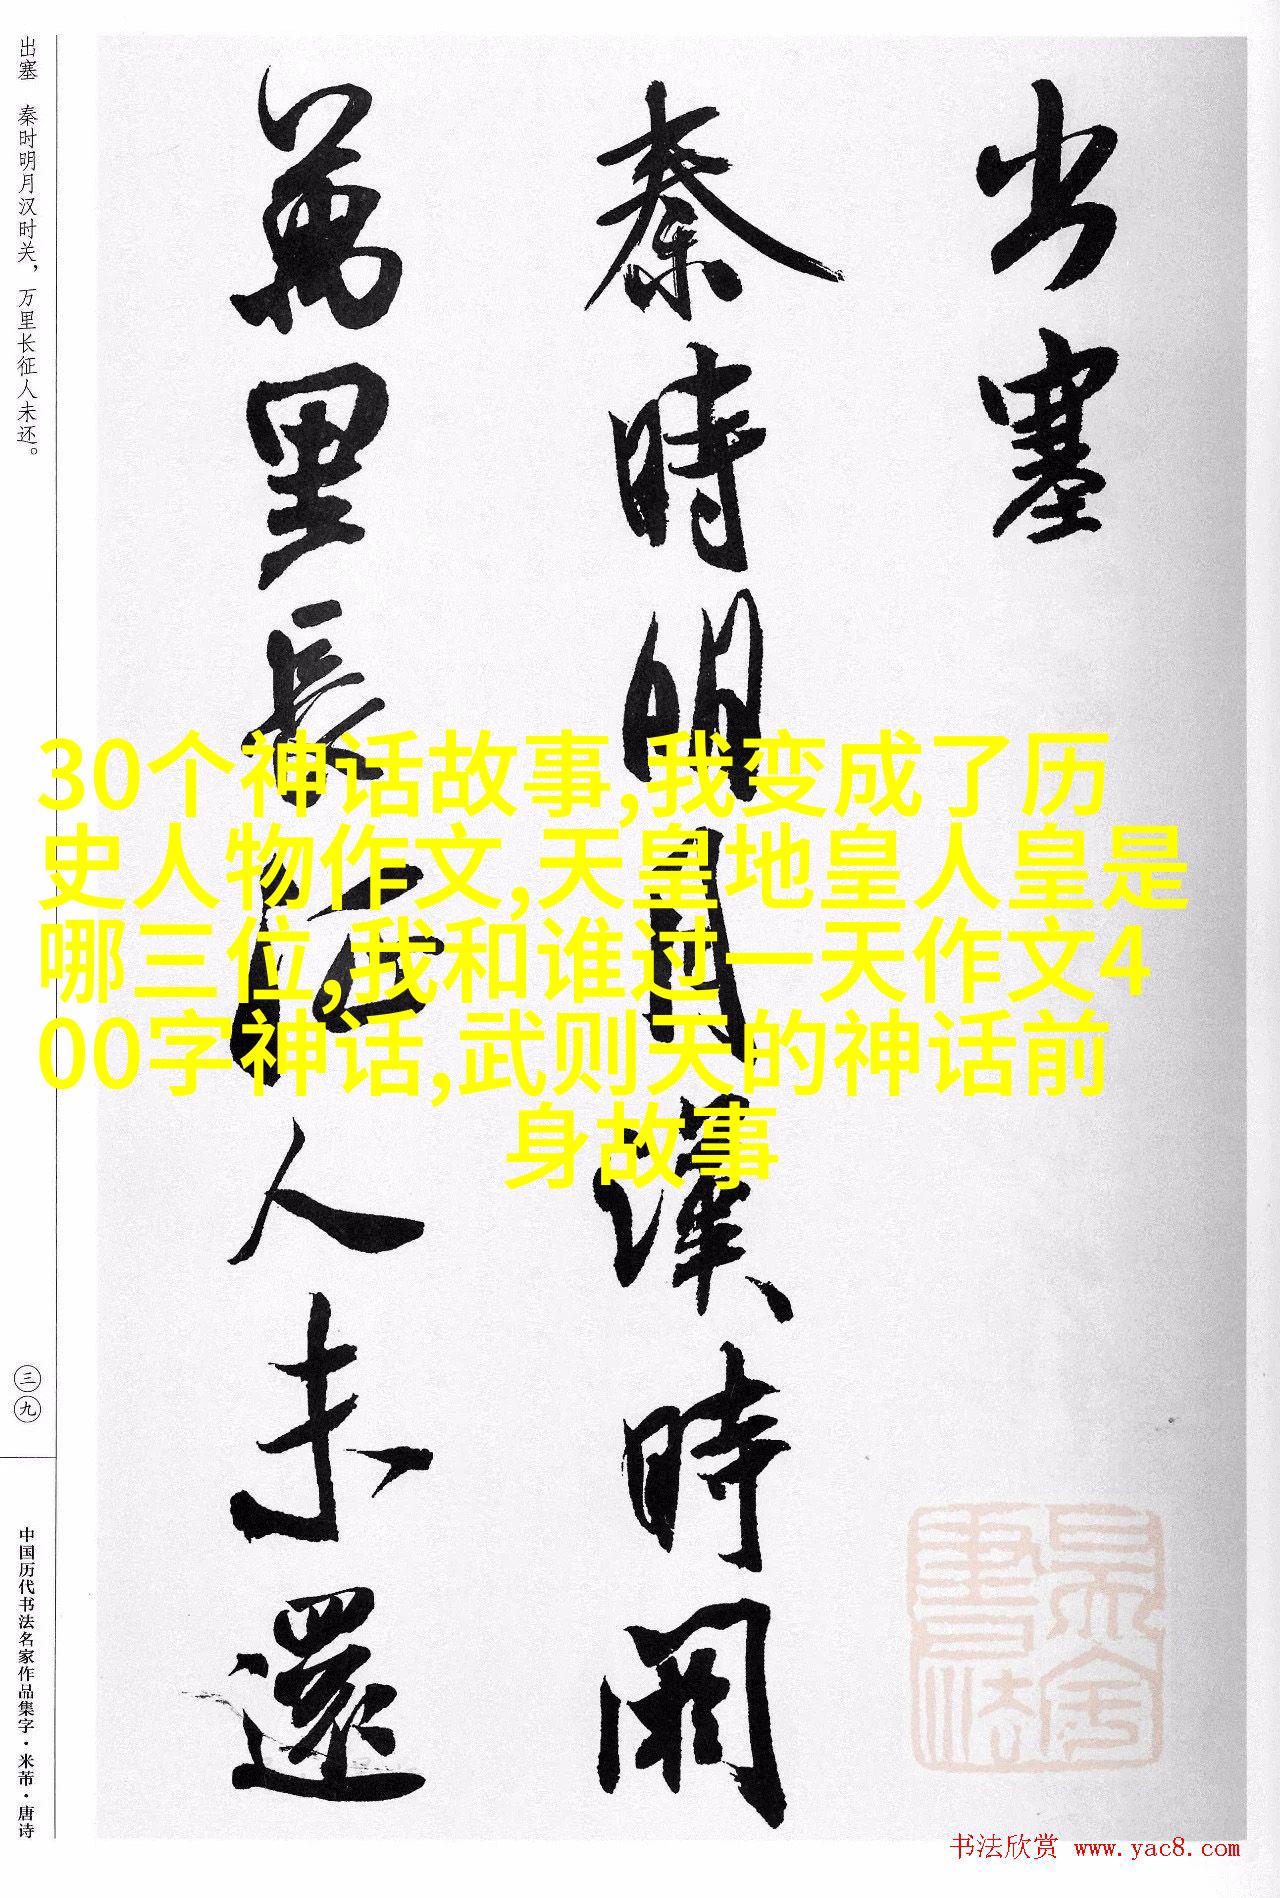 出塞
秦時明月漢時関
萬里長征人未還
出塞 秦时明月汉时关，万里长征人未还。
三九
中国历代书法名家作品集字·米芾·唐诗
30个神话故事,我变成了历
史人物作文,天皇地皇人皇是
哪三位,我和谁过一天作文4
00字神话,武则天的神话前
身故事
书法欣赏 www.yac8.com